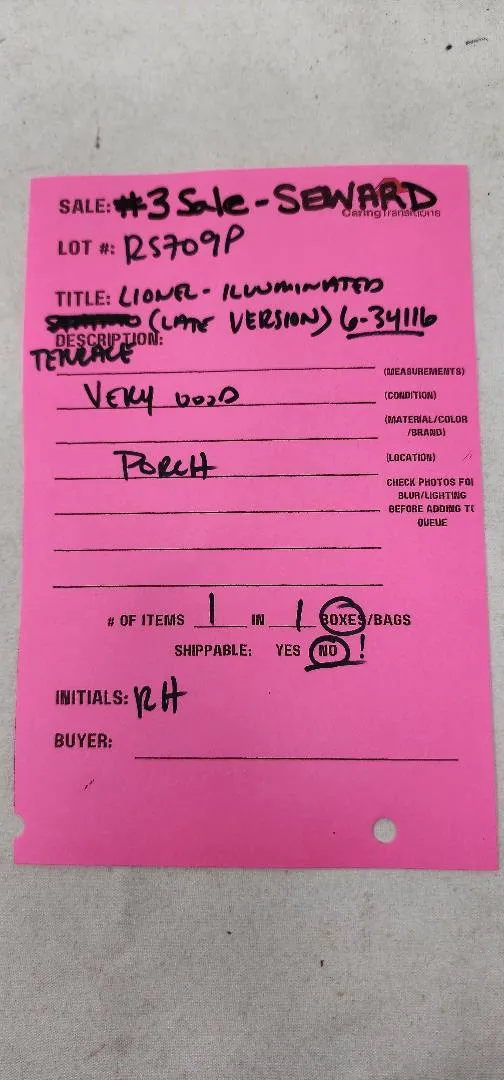 SALE: #3 Sale - SEWARD
CaringTransitions
LOT #: RS709P
TITLE: LIONEL - ILLUMINATED
(LATE VERSION) 6-34116
DESCRIPTION:
TERRACE
(MEASUREMENTS)
VERY GOOD (CONDITION)
(MATERIAL/COLOR
/BRAND)
PORCH (LOCATION)
CHECK PHOTOS FOR
BLUR/LIGHTING
BEFORE ADDING TO
QUEUE
# OF ITEMS 1 IN 1 BOXES/BAGS
SHIPPABLE: YES NO !
INITIALS: RH
BUYER: